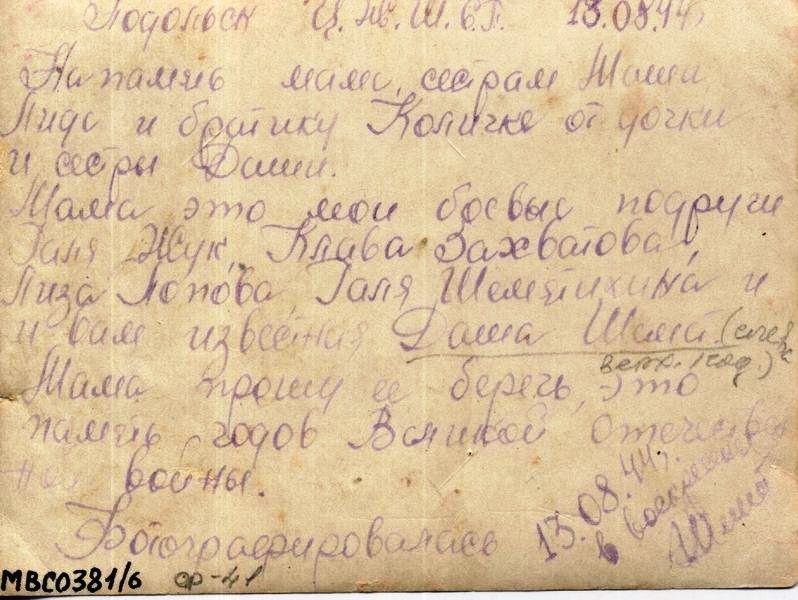 Подольск Ц.Ж.Ш.С.П. 13.08.44
На память маме, сестрам Маши
Лиде и братику Количке от дочки
и сестры Даши.
Мама это мои боевые подруги
Галя Жук, Клава Захватова,
Лиза Попова, Галя Шемятихина и
и вам известная Даша Шемет. (слев
верх. ряд.)
Мама прошу ее беречь, это
память годов Великой Отечествен
ной войны.
Фотографировалась 13.08.44г.
в воскресенье
Шемет
МВС0381/6 ср-41